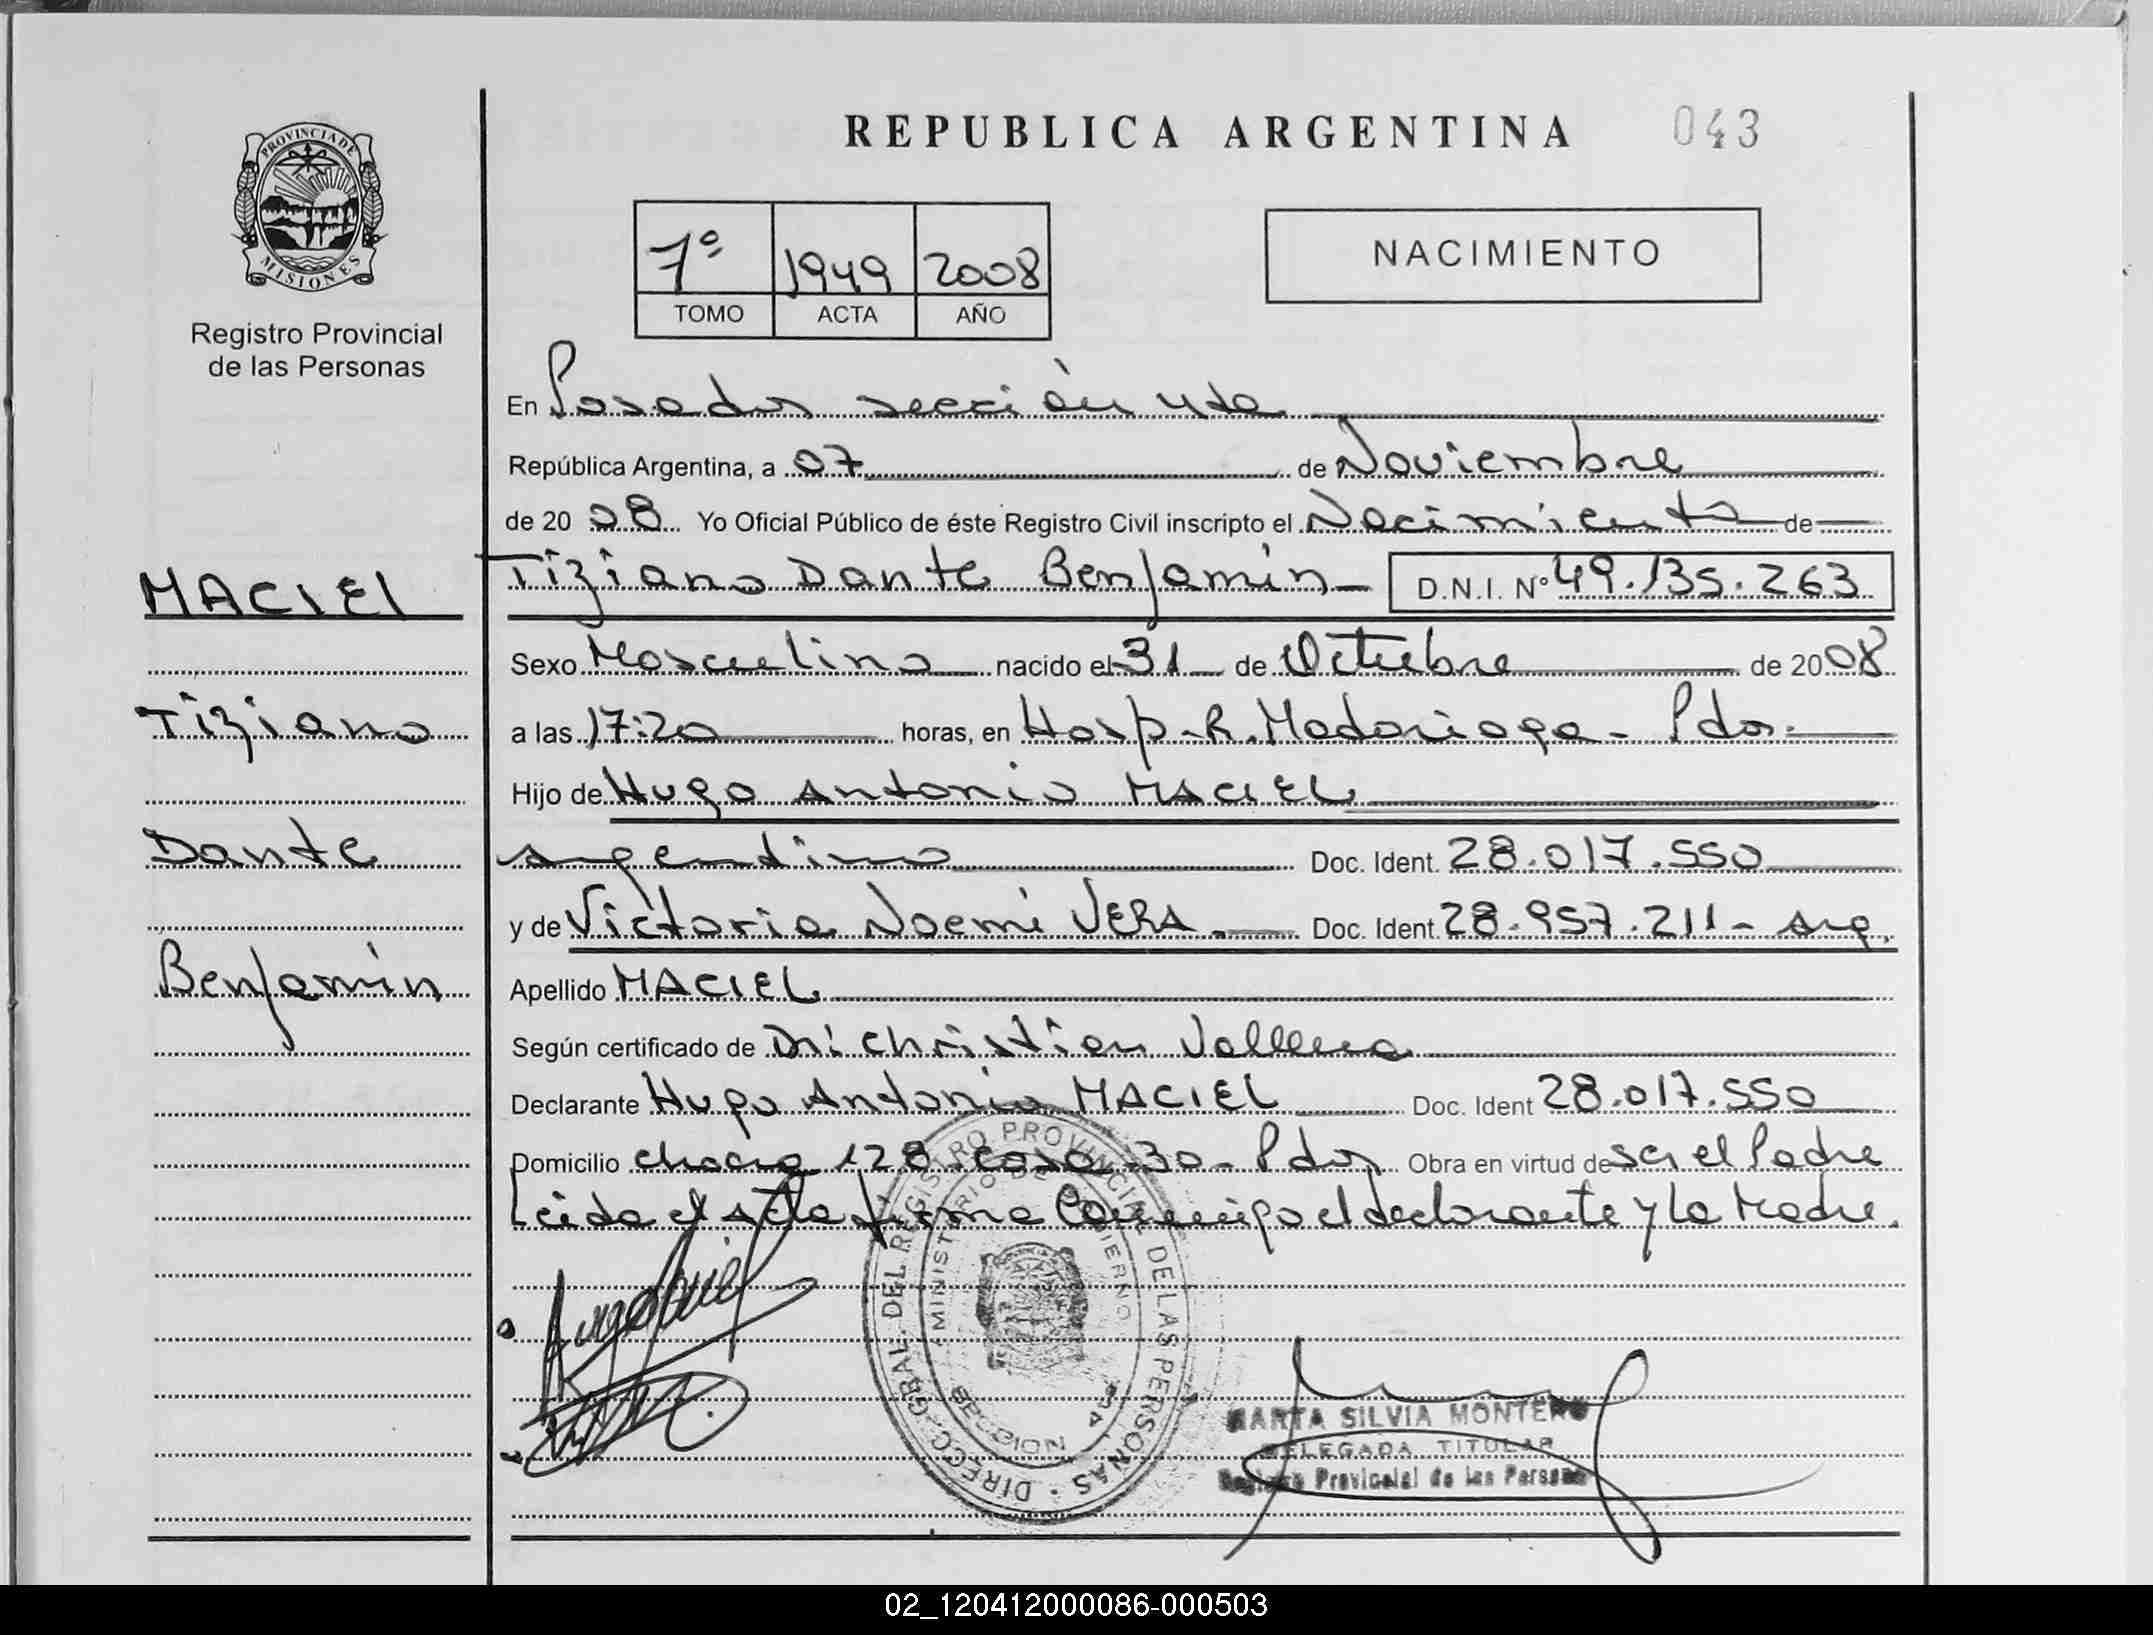 REPUBLICA ARGENTINA 043
PROVINCIA DE
MISIONES
Registro Provincial
de las Personas
7º 1949 2008
TOMO ACTA AÑO
NACIMIENTO
En Posadas sección 4ta
República Argentina, a 07 de Noviembre
de 2008 Yo Oficial Público de éste Registro Civil inscripto el Nacimiento de
MACIEL
Tiziano Dante Benjamín D.N.I. Nº 49.135.263
Sexo Masculino nacido el 31 de Octubre de 2008
Tiziano
a las 17:20 horas, en Hosp. R. Madariaga - Pdas.
Hijo de Hugo Antonio MACIEL
Dante
argentino Doc. Ident. 28.017.550
y de Victoria Noemí VERA. Doc. Ident. 28.957.211 - arg.
Benjamín
Apellido MACIEL
Según certificado de Dr. Christian
Declarante Hugo Antonio MACIEL Doc. Ident 28.017.550
Domicilio chacra 128 casa 30 - Pdas Obra en virtud de ser el Padre
Leida el Acta firma Conmigo el declarante y la Madre.
DIRECC. GRAL. DEL REGISTRO PROVINCIAL DE LAS PERSONAS
MINISTERIO DE GOBIERNO
MARTA SILVIA MONTERO
DELEGADA TITULAR
Registro Provincial de las Personas
02_120412000086-000503